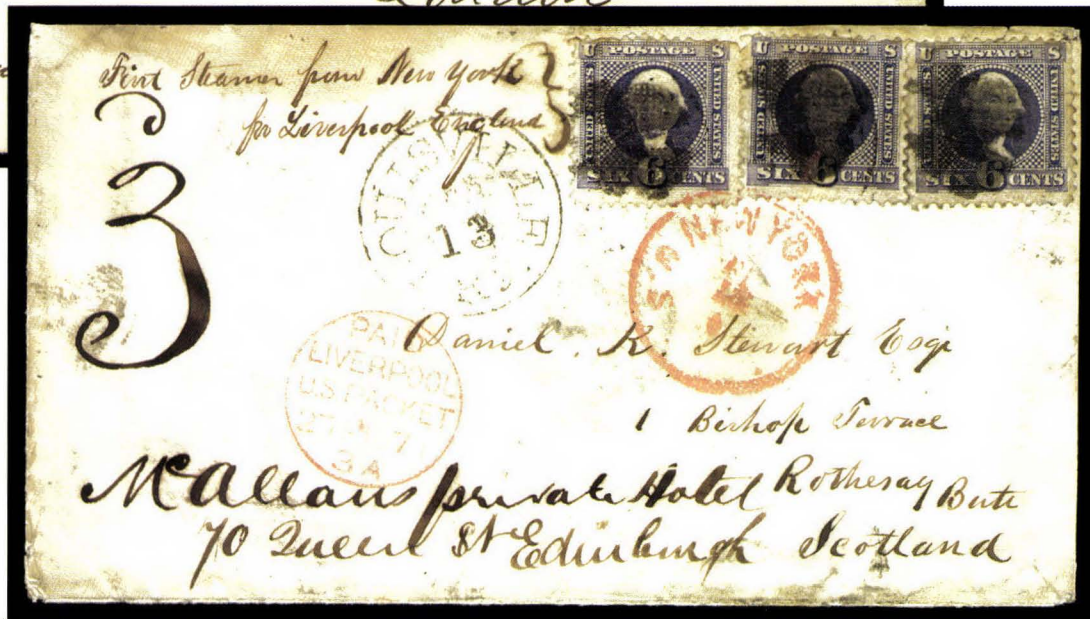 London
First Steamer from New York
for Liverpool England
3
3
U POSTAGE S
UNITED STATES
SIX 6 CENTS
U POSTAGE S
UNITED STATES
SIX 6 CENTS
U POSTAGE S
UNITED STATES
SIX 6 CENTS
LOUISVILLE
13
KY.
NEW YORK
PAID
LIVERPOOL
U.S. PACKET
3A
Daniel. K. Stewart Esqr
1 Bishop Terrace
Rothesay Bute
McAllans private Hotel
70 Queen St Edinburgh Scotland